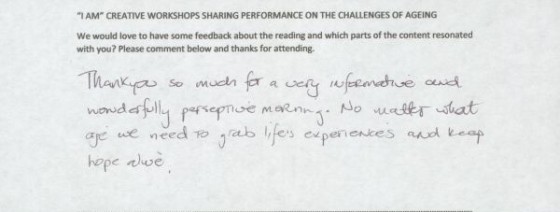 "I AM" CREATIVE WORKSHOPS SHARING PERFORMANCE ON THE CHALLENGES OF AGEING
We would love to have some feedback about the reading and which parts of the content resonated
with you? Please comment below and thanks for attending.
Thankyou so much for a very informative and
wonderfully perseptive morning. No matter what
age we need to grab life's experiences and keep
hope alive.